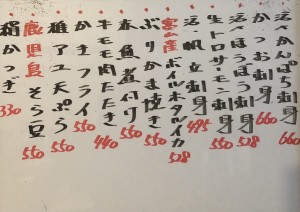 活〆かんぱち刺身 660
かつお刺身 660
活〆ほうぼう刺身 528
生トロサーモン刺身 550
活〆帆立刺身 495
富山産ボイルホタルイカ 528
ぶりかま焼き 550
赤魚煮付け 550
牛モモ肉たたき 440
かきフライ 550
稚アユ天ぷら 550
鹿児島そら豆 550
絹かつぎ 330